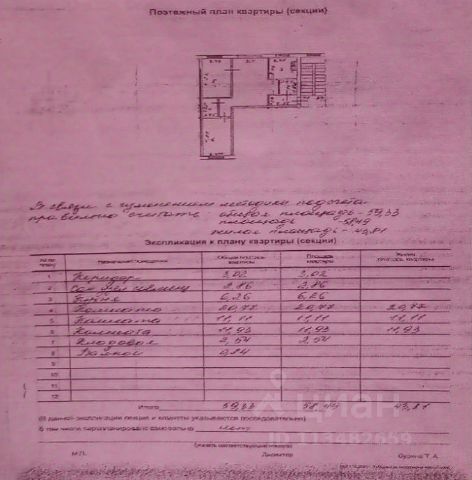 Поэтажный план квартиры (секции)
В связи с изменением методики подсчета
правильно считать общая площадь - 59,33
площадь - 58,49
жилая площадь - 43,81
Экспликация к плану квартиры (секции)
Общая площадь квартиры Площадь квартиры Жилая площадь квартиры
1 Коридор 3,02 3,02
2 Сан. узел 2,86 2,86
3 Кухня 6,26 6,26
4 Комната 20,77 20,77 20,77
5 Комната 11,11 11,11 11,11
6 Комната 11,93 11,93 11,93
7 Кладовая 2,54 2,54
8 Балкон 0,84
9
10
11
12
Итого 59,33 58,49 43,81
(В данной экспликации секция и комнаты указываются последовательно)
В том числе перепланировано самовольно нет
(указать соответствующие номера)
М.П. Сурина Т.А.
Циан
ID 113482669